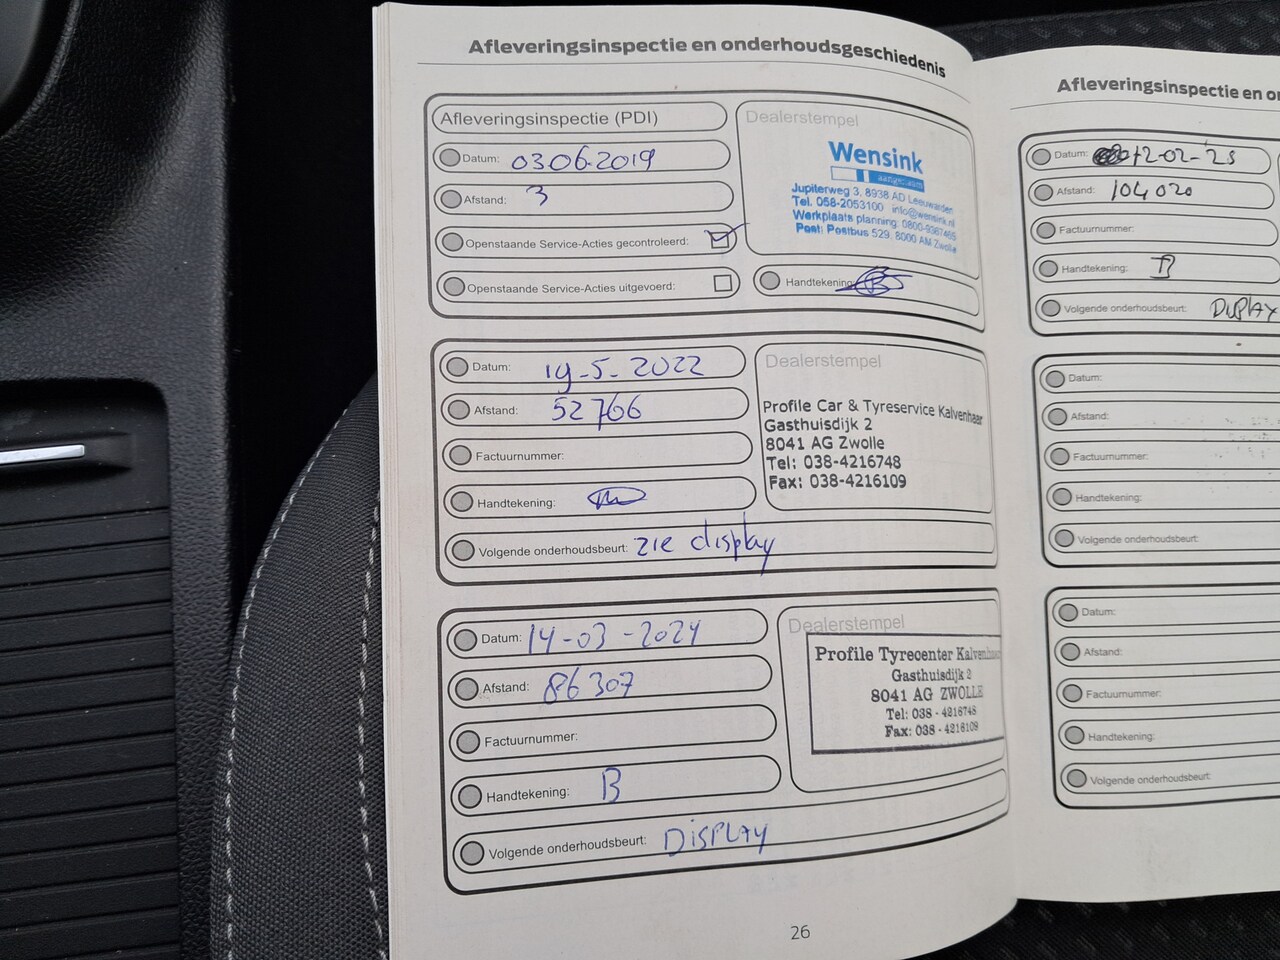 Afleveringsinspectie en onderhoudsgeschiedenis
Afleveringsinspectie (PDI)
Datum: 03 06-2019
Afstand: 3
Openstaande Service-Acties gecontroleerd:
Openstaande Service-Acties uitgevoerd:
Dealerstempel
Wensink
Jupiterweg 3, 8938 AD Leeuwarden
Tel. 058-2053100 info@wensink.nl
Werkplaats planning: 0800-9367465
Post: Postbus 529, 8000 AM Zwolle
Handtekening
Datum: 19-5-2022
Afstand: 52766
Factuurnummer:
Handtekening:
Volgende onderhoudsbeurt: zie display
Dealerstempel
Profile Car & Tyreservice Kalvenhaar
Gasthuisdijk 2
8041 AG Zwolle
Tel: 038-4216748
Fax: 038-4216109
Datum: 14-03-2024
Afstand: 86307
Factuurnummer:
Handtekening: B
Volgende onderhoudsbeurt: DiSPLAY
Dealerstempel
Profile Tyrecenter
Gasthuisdijk 2
8041 AG ZWOLLE
Tel: 038 - 4216748
Fax: 038 - 4216109
26
Afleveringsinspectie en
Datum: 12-02-25
Afstand: 104020
Factuurnummer:
Handtekening: B
Volgende onderhoudsbeurt: DISPLAY
Datum:
Afstand:
Factuurnummer:
Handtekening:
Volgende onderhoudsbeurt:
Datum:
Afstand:
Factuurnummer:
Handtekening:
Volgende onderhoudsbeurt: